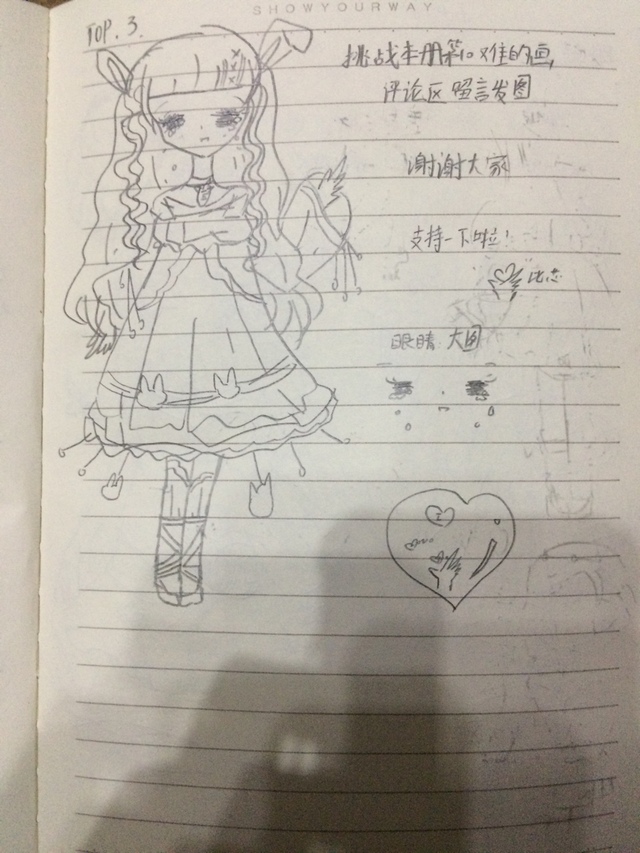 SHOWYOURWAY
TOP.3.
挑战本册第10难的画,
评论区留言发图
谢谢大家
支持一下啦!
比心
眼睛大图